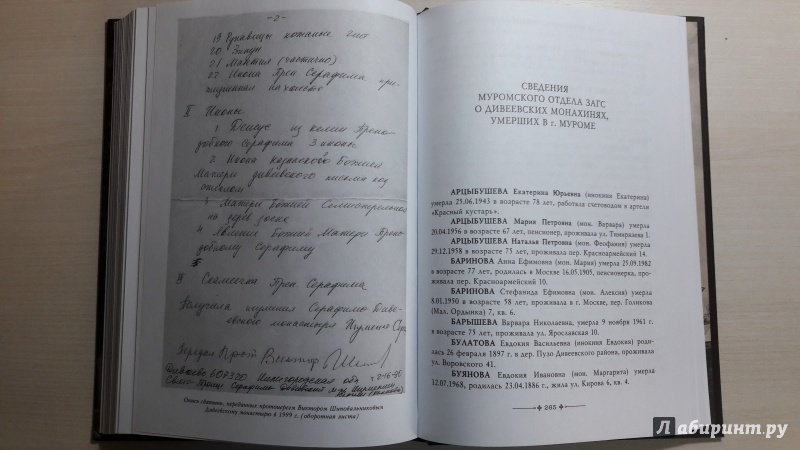 -2-
19 Рукавицы кожаные 2шт
20 Зипун
21 Мантия (частично)
22 Икона Преп Серафима
на холсте
II Иконы
1. из келии Препо-
добного Серафима 3 иконы.
2. Икона Казанской Божией
Матери дивеевского письма под
3 Матери Божией
на доске
4 Явление Божией Матери Препо-
добному Серафиму
Преп Серафима
Получила игумения Серафимо Диве-
евского монастыря Игумения
Передал Прот. Виктор
Дивеево 607320 Нижегородская обл
Свято-Троиц Серафимо Дивеевский
Опись святынь, переданных протоиереем Виктором Шиповальниковым
Дивеевскому монастырю в 1999 г. (оборотная листа)
СВЕДЕНИЯ
МУРОМСКОГО ОТДЕЛА ЗАГС
О ДИВЕЕВСКИХ МОНАХИНЯХ,
УМЕРШИХ В г. МУРОМЕ
АРЦЫБУШЕВА Екатерина Юрьевна (инокиня Екатерина)
умерла 25.06.1943 в возрасте 78 лет, работала счетоводом в артели
«Красный кустарь».
АРЦЫБУШЕВА Мария Петровна (мон. Варвара) умерла
20.04.1956 в возрасте 67 лет, пенсионер, проживала ул. Тимирязева 1.
АРЦЫБУШЕВА Наталья Петровна (мон. Феофания) умерла
29.12.1958 в возрасте 75 лет, проживала пер. Красноармейский 14.
БАРИНОВА Анна Ефимовна (мон. Мария) умерла 25.09.1982
в возрасте 77 лет, родилась в Москве 16.05.1905, пенсионерка, про-
живала пер. Красноармейский 10.
БАРИНОВА Стефанида Ефимовна (мон. Алексия) умерла
8.01.1950 в возрасте 58 лет, проживала в г. Москве, пер. Голикова
(Мал. Ордынка) 7, кв. 6.
БАРЫШЕВА Варвара Николаевна, умерла 9 ноября 1961 г.
в возрасте 75 лет, проживала ул. Ярославская 10.
БУЛАТОВА Евдокия Васильевна (инокиня Евдокия) роди-
лась 26 февраля 1897 г. в дер. Пузо Дивеевского района, проживала
ул. Воровского 41.
БУЯНОВА Евдокия Ивановна (мон. Маргарита) умерла
12.07.1968, родилась 23.04.1886 г., жила ул. Кирова 6, кв. 4.
265
Лабиринт.ру